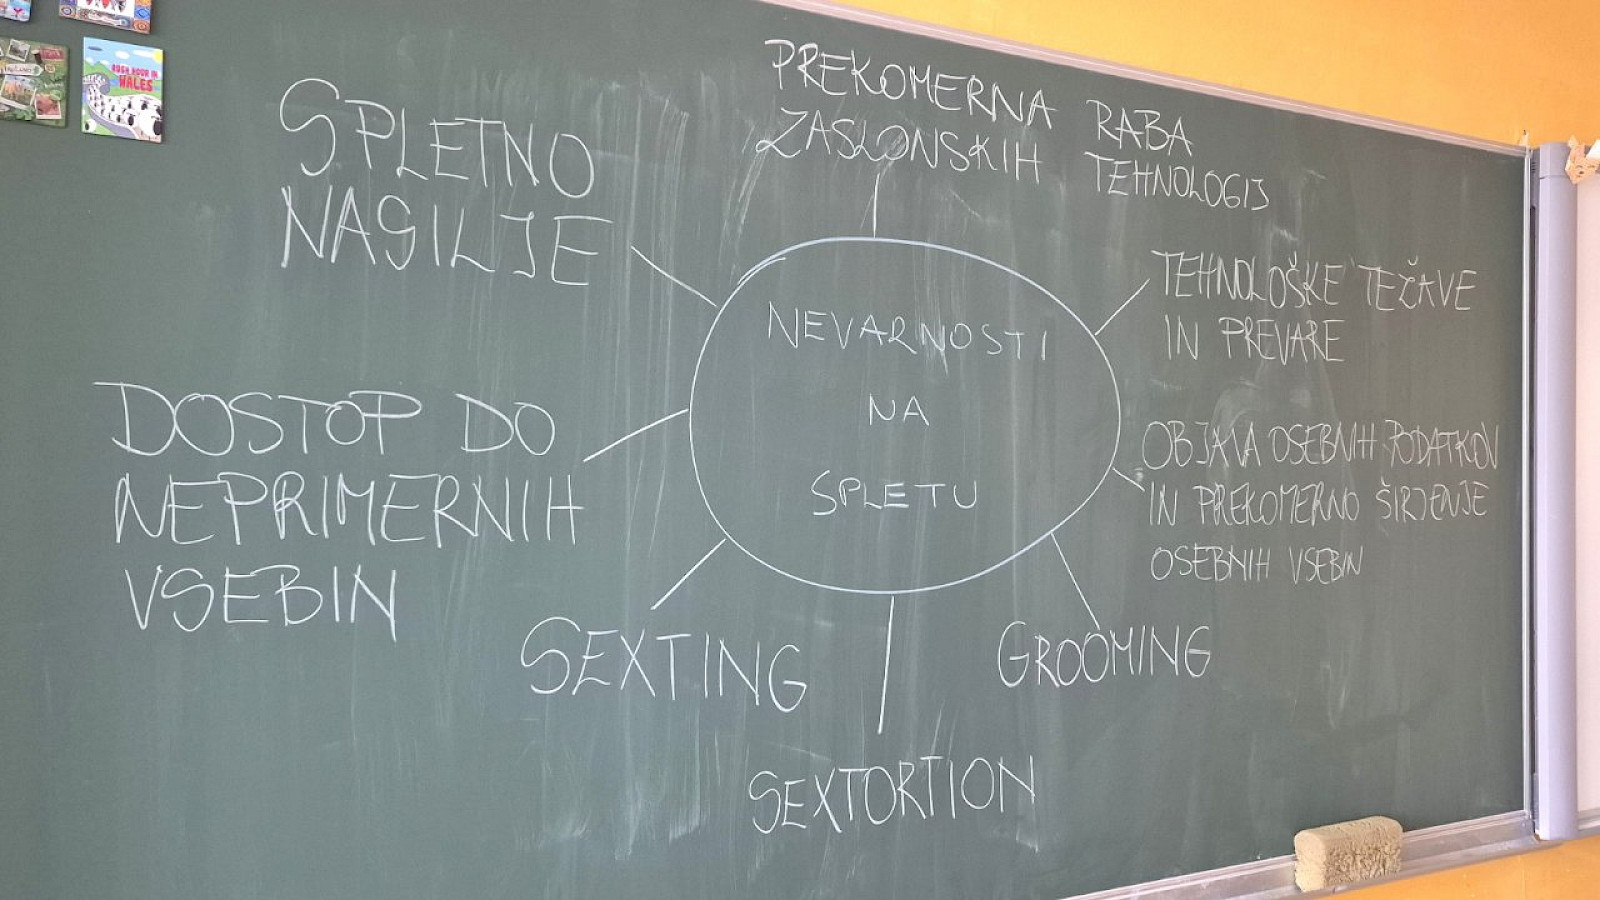 RUSH HOUR IN
WALES
SPLETNO
NASILJE
PREKOMERNA RABA
ZASLONSKIH TEHNOLOGIJ
TEHNOLOŠKE TEŽAVE
IN PREVARE
OBJAVA OSEBNIH PODATKOV
IN PREKOMERNO ŠIRJENJE
OSEBNIH VSEBIN
GROOMING
SEXTORTION
SEXTING
DOSTOP DO
NEPRIMERNIH
VSEBIN
NEVARNOSTI
NA
SPLETU